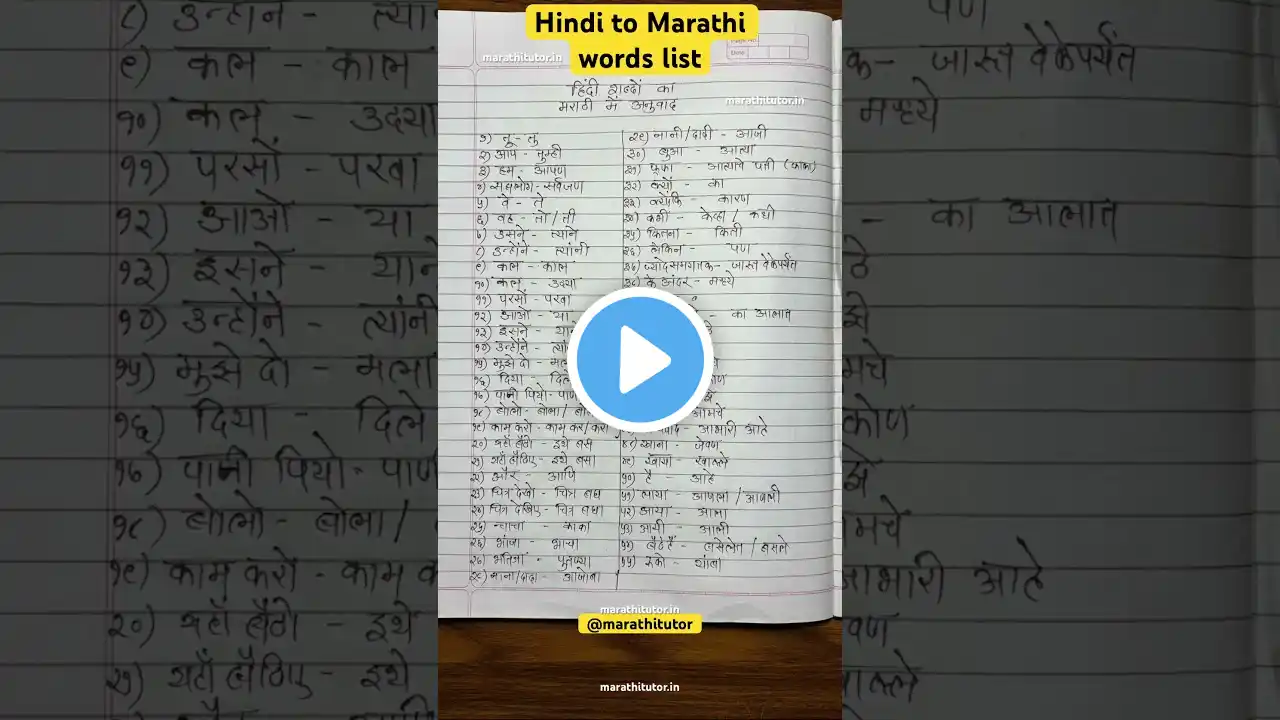 Hindi to Marathi
words list
marathitutor.in
marathitutor.in
हिंदी शब्दों का
मराठी में अनुवाद
१) तू - तु
२) आप - तुम्ही
३) हम - आपण
४) सबलोग - सर्वजण
५) वे - ते
६) वह - तो / ती
७) उसने - त्याने
८) उन्होंने - त्यांनी
९) कल - काल
१०) कल - उदया
११) परसों - परवा
१२) आओ - या
१३) इसने - याने
१४) उन्होंने - त्यांनी
१५) मुझे दो - मला
१६) दिया - दिले
१७) पानी पियो - पाणी
१८) बोलो - बोला /
१९) काम करो - काम कर / करा
२०) यहाँ बैठो - इथे बस
२१) यहाँ बैठिए - इथे बसा
२२) और - आणि
२३) चित्र देखो - चित्र बघ
२४) चित्र देखिए - चित्र बघा
२५) चाचा - काका
२६) भांजा - भाचा
२७) भतिजा - पुतण्या
२८) नाना/दादा - आजोबा
२९) नानी/दादी - आजी
३०) बुआ - आत्या
३१) फूफा - आत्याचे पती (काका)
३२) क्यों - का
३३) क्योंकि - कारण
३४) कभी - केव्हा / कधी
३५) कितना - किती
३६) लेकिन - पण
३७) ज्यादा समय तक - जास्त वेळेपर्यंत
३८) के अंदर - मध्ये
- का आलात
कोण
आमचे
आभारी आहे
४८) खाना - जेवण
४९) खाया - खाल्ले
५०) है - आहे
५१) लाया - आणला / आणली
५२) आया - आला
५३) आयी - आली
५४) बैठे हैं - बसलेत / बसले
५५) रुको - थांबा
marathitutor.in
@marathitutor
marathitutor.in